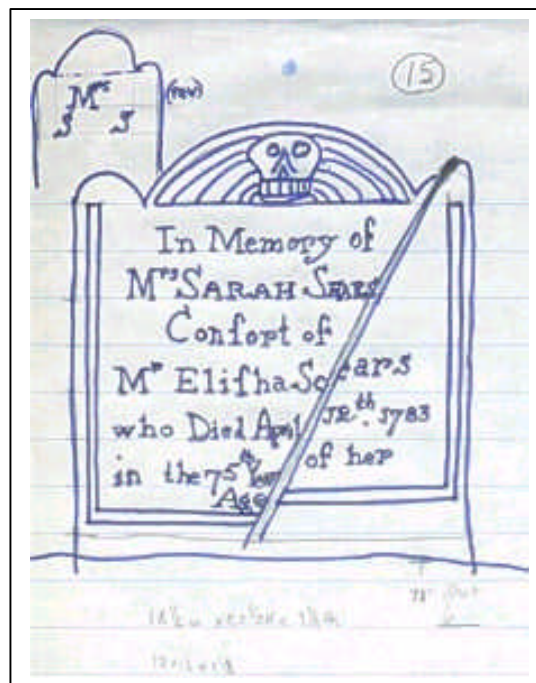 15
Mrs
S S
(rev)
In Memory of
Mrs SARAH SEARS
Confort of
Mr Elifha Sears
who Died April 12th. 1783
in the 75th Year of her
Age